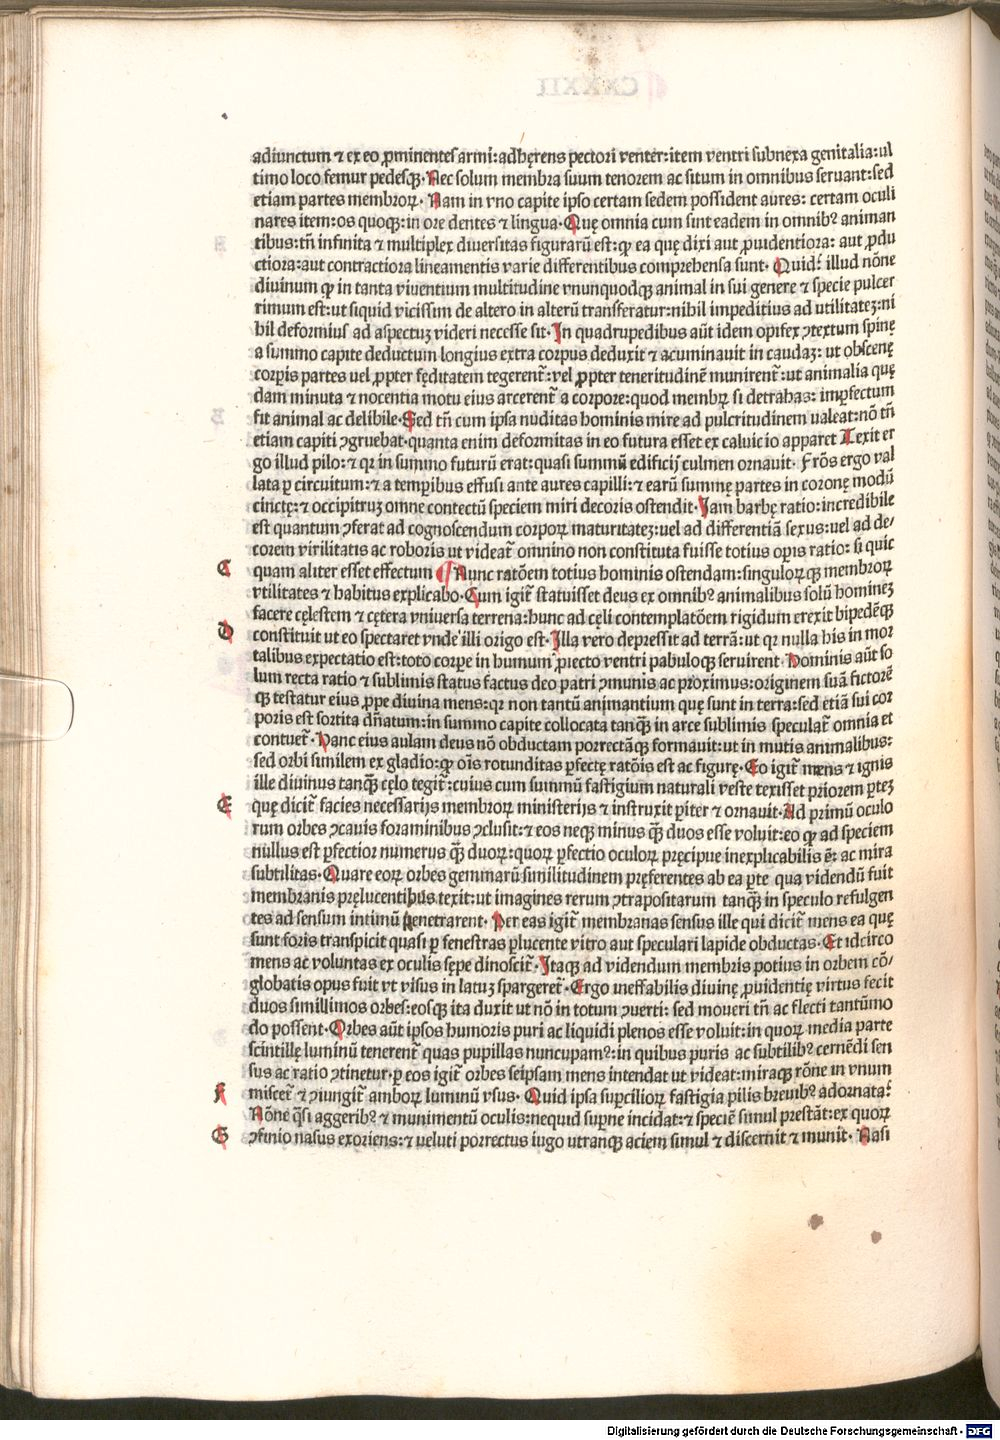 adiunctum ⁊ ex eo ꝓminentes armi: adhęrens pectori venter: item ventri subnexa genitalia: ul
timo loco femur pedesqꝫ. Nec solum membra suum tenorem ac situm in omnibus seruant: sed
etiam partes membroꝝ. Nam in vno capite ipso certam sedem possident aures: certam oculi
nares item: os quoqꝫ: in ore dentes ⁊ lingua. Quę omnia cum sint eadem in omnibꝰ animan
tibus: tñ infinita ⁊ multiplex diuersitas figurarũ est: ꝙ ea quę dixi aut ꝓductiora: aut ꝓdu
ctiora: aut contractiora lineamentis varie differentibus comprehensa sunt. Quid? illud nõne
diuinum ꝙ in tanta viuentium multitudine vnunquodqꝫ animal in sui genere ⁊ specie pulcer
rimum est: ut siquid vicissim de altero in alterũ transferatur: nihil impeditius ad utilitatēꝫ: ni
hil deformius ad aspectuꝫ videri necesse sit. In quadrupedibus aũt idem opifex ꝯtextum spinę
a summo capite deductum longius extra corpus deduxit ⁊ acuminauit in caudaꝫ: ut obscenę
corpꝑis partes uel ꝓpter fęditatem tegerent᷑: vel ꝓpter teneritudinẽ munirent᷑: ut animalia quę
dam minuta ⁊ nocentia motu eius arcerent᷑ a corpore: quod membꝝ si detrahas: imꝑfectum
fit animal ac debile. Sed tñ cum ipsa nuditas hominis mire ad pulcritudinem ualeat: nõ tñ
etiam capiti ꝯgruebat. quanta enim deformitas in eo futura esset ex caluicio apparet Texit er
go illud pilo: ⁊ qꝛ in summo futurũ erat: quasi summũ edificij culmen ornauit. Frõs ergo val
lata ꝑ circuitum: ⁊ a temꝑibus effusi ante aures capilli: ⁊ earũ summę partes in coronę modũ
cinctę: ⁊ occipitiuꝫ omne contectũ speciem miri decoris ostendit. Jam barbę ratio: incredibile
est quantum ꝯferat ad cognoscendum corporꝝ maturitateꝫ: uel ad differentiã sexus: uel ad de/
corem virilitatis ac roboris ut videat᷑ omnino non constituta fuisse totius opꝑis ratio: si quic
C quam aliter esset effectum ¶ Nunc ratõem totius hominis ostendam: singuloꝝqꝫ membroꝝ
vtilitates ⁊ habitus explicabo. Cum igit᷑ statuisset deus ex omnibꝰ animalibus solũ homineꝫ
facere cęlestem ⁊ cętera vniuersa terrena: hunc ad cęli contemplatõem rigidum erexit bipedẽqꝫ
D constituit ut eo spectaret vnde illi origo est. Illa vero depressit ad terrã: ut qꝛ nulla his in mor
talibus expectatio est: toto corpꝑe in humum ꝓiecto ventri pabuloqꝫ seruirent. Hominis aũt so
lum recta ratio ⁊ sublimis status factus deo patri ꝯmunis ac proximus: originem suã fictorẽ
qꝫ testatur eius ꝓpe diuina mens: qꝛ non tantũ animantium quę sunt in terra: sed etiã sui cor
poris est sortita dñatum: in summo capite collocata tanqꝫ̃ in arce sublimis speculat᷑ omnia et
contuet᷑. Hanc eius aulam deus nõ obductam porrectãqꝫ formauit: ut in mutis animalibus:
sed orbi similem ex gladio: ꝙ oĩs rotunditas ꝑfectę ratõis est ac figurę. Eo igit᷑ mens ⁊ ignis
ille diuinus tanqꝫ̃ cęlo tegit᷑: cuius cum summũ fastigium naturali veste texisset priorem ꝑteꝫ
E quę dicit᷑ facies necessarijs membroꝝ ministerijs ⁊ instruxit ꝑiter ⁊ ornauit. Ad primũ oculo
rum orbes ꝯcauis foraminibus ꝯclusit: ⁊ eos neqꝫ minus qꝫ̃ duos esse voluit: eo ꝙ ad speciem
nullus est ꝑfectior numerus qꝫ̃ duoꝝ: quoꝝ ꝑfectio oculoꝝ pręcipue inexplicabilis ẽ: ac mira
subtilitas. Quare eoꝝ orbes gemmarũ similitudinem pręferentes ab ea ꝑte qua videndũ fuit
membranis pręlucentibus texit: ut imagines rerum ꝯtrapositarum tanqꝫ̃ in speculo refulgen
tes ad sensum intimũ penetrarent. Per eas igit᷑ membranas sensus ille qui dicit᷑ mens ea quę
sunt foris transpicit quasi ꝑ fenestras ꝑlucente vitro aut speculari lapide obductas. Et idcirco
mens ac voluntas ex oculis sępe dinoscit᷑. Itaqꝫ ad videndum membris potius in orbem cõ/
globatis opus fuit vt visus in latuꝫ spargeret᷑. Ergo ineffabilis diuinę ꝓuidentię virtus fecit
duos simillimos orbes: eosqꝫ ita duxit ut nõ in totum ꝯuerti: sed moueri tñ ac flecti tantũmo
do possent. Orbes aũt ipsos humoris puri ac liquidi plenos esse voluit: in quoꝝ media parte
scintillę luminũ tenerent᷑ quas pupillas nuncupamꝰ: in quibus puris ac subtilibꝰ cernẽdi sen
sus ac ratio ꝯtinetur. ꝑ eos igit᷑ orbes seipsam mens intendat ut videat: miraqꝫ rõne in vnum
F miscet᷑ ⁊ ꝯiungit᷑ amboꝝ luminũ vsus. Quid ipsa suꝑcilioꝝ fastigia pilis breuibꝰ adornata?
Nõne qͣsi aggeribꝰ ⁊ munimentũ oculis: nequid suꝑne incidat: ⁊ speciẽ simul prestãt: ex quoꝝ
G ꝯfinio nasus exoriens: ⁊ ueluti porrectus iugo utranqꝫ aciem simul ⁊ discernit ⁊ munit. Nasi
Digitalisierung gefördert durch die Deutsche Forschungsgemeinschaft - DFG